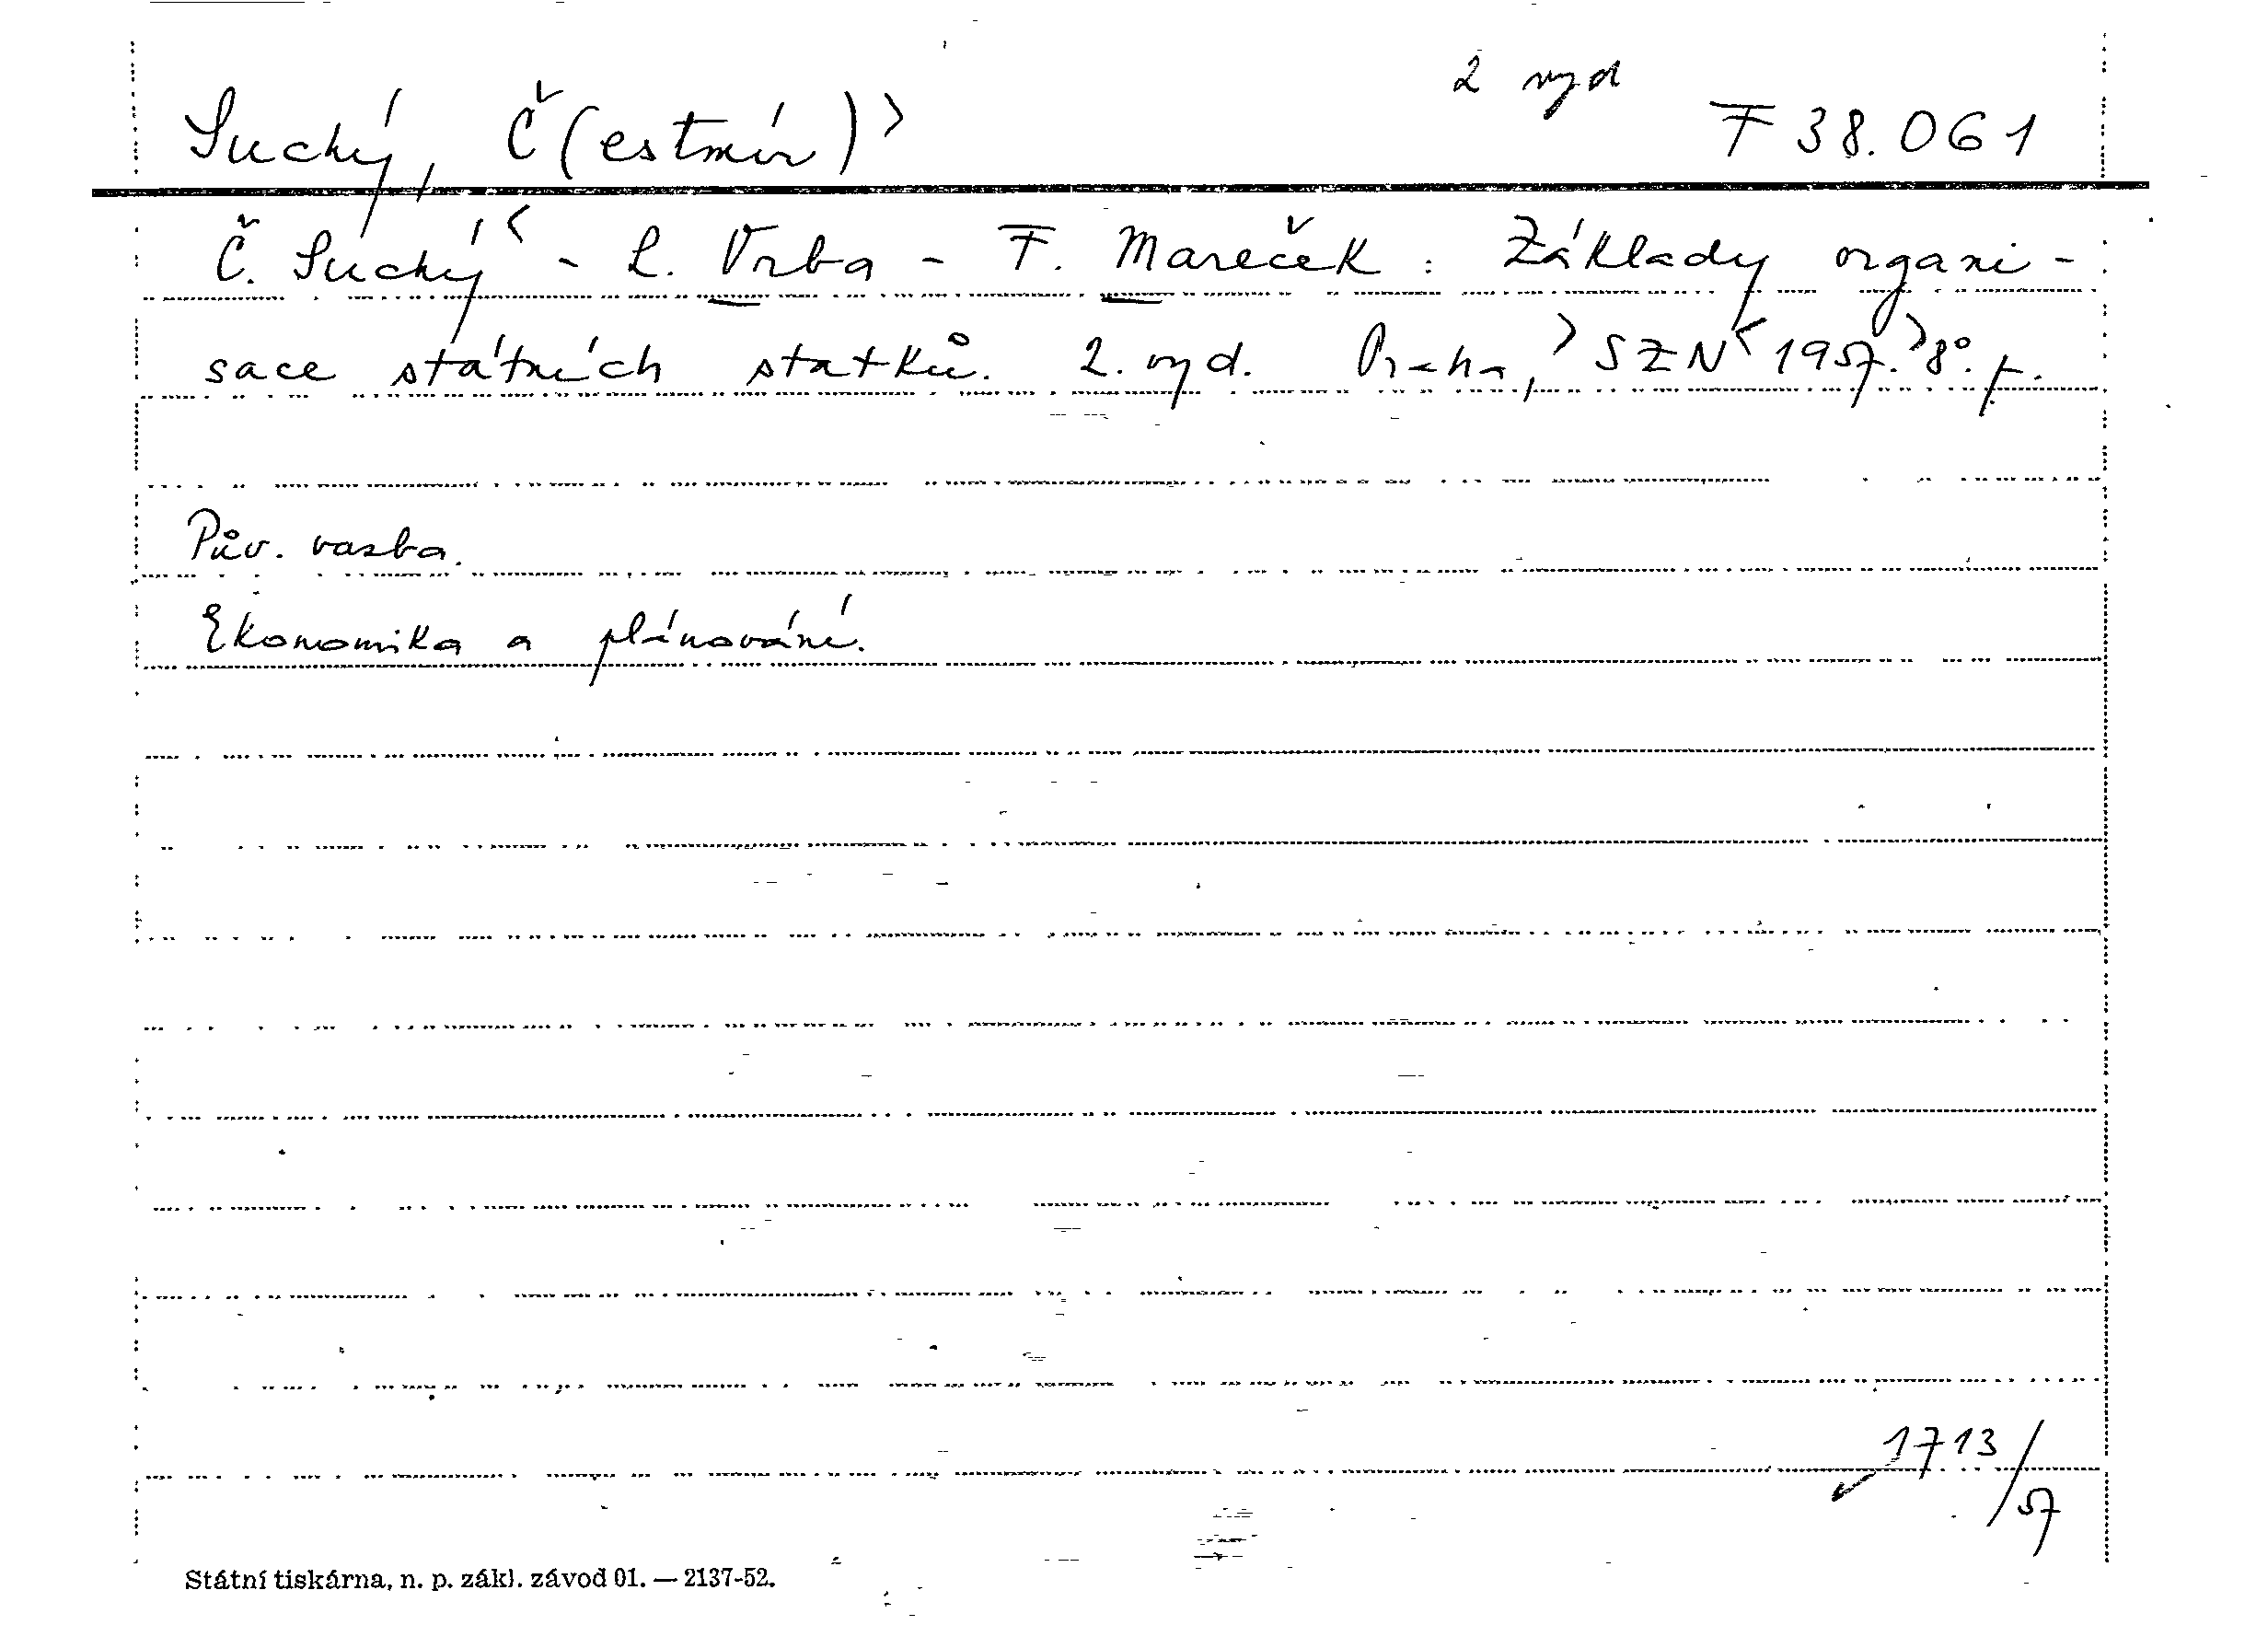 2 vyd
Suchý, Č(estmír)> F 38.061
Č. Suchý< - L. Vrba - F. Mareček : Základy organi-
sace státních statků. 2. vyd. Praha, >SZN< 1957.> 8°.
Pův. vazba.
Ekonomika a plánování.
1713/57
Státní tiskárna, n. p. zákl. závod 01. — 2137-52.